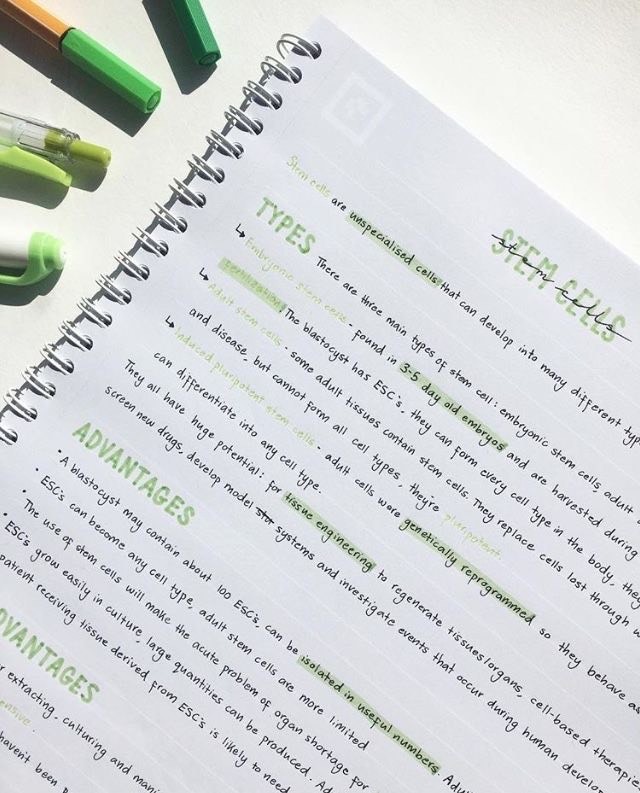 STEM CELLS
stem cells
Stem cells are unspecialised cells that can develop into many different typ
TYPES There are three main types of stem cell: embryonic stem cells, adult
↳ Embryonic stem cells - found in 3-5 day old embryos and are harvested during
fertilisation. The blastocyst has ESC's, they can form every cell type in the body, they
↳ Adult stem cells - some adult tissues contain stem cells. They replace cells lost through
and disease, but cannot form all cell types, they're pluripotent.
↳ Induced pluripotent stem cells - adult cells were genetically reprogrammed so they behave as
can differentiate into any cell type.
They all have huge potential: for tissue engineering to regenerate tissues/organs, cell-based therapie
screen new drugs, develop model systems and investigate events that occur during human develo
ADVANTAGES
• A blastocyst may contain about 100 ESC's, can be isolated in useful numbers. Adu
• ESC's can become any cell type, adult stem cells are more limited
• The use of stem cells will make the acute problem of organ shortage for
• ESC's grow easily in culture, large quantities can be produced. Ad
patient receiving tissue derived from ESC's is likely to need
DVANTAGES
r extracting, culturing and mani
ensive.
haven't been